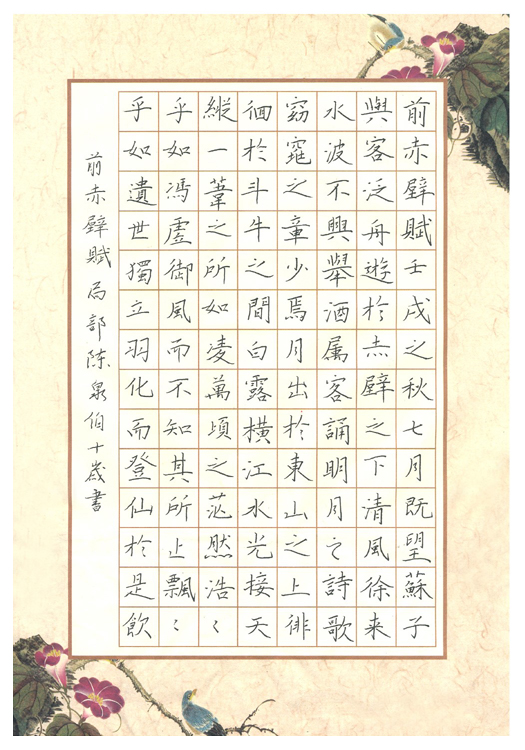 前赤壁賦壬戌之秋七月既望蘇子
與客泛舟遊於赤壁之下清風徐来
水波不興舉酒属客誦明月之詩歌
窈窕之章少焉月出於東山之上徘
徊於斗牛之間白露横江水光接天
縱一葦之所如凌萬頃之茫然浩〻
乎如馮虛御風而不知其所止飄〻
乎如遺世獨立羽化而登仙於是飲
前赤壁賦局部陈泉伯十歲書